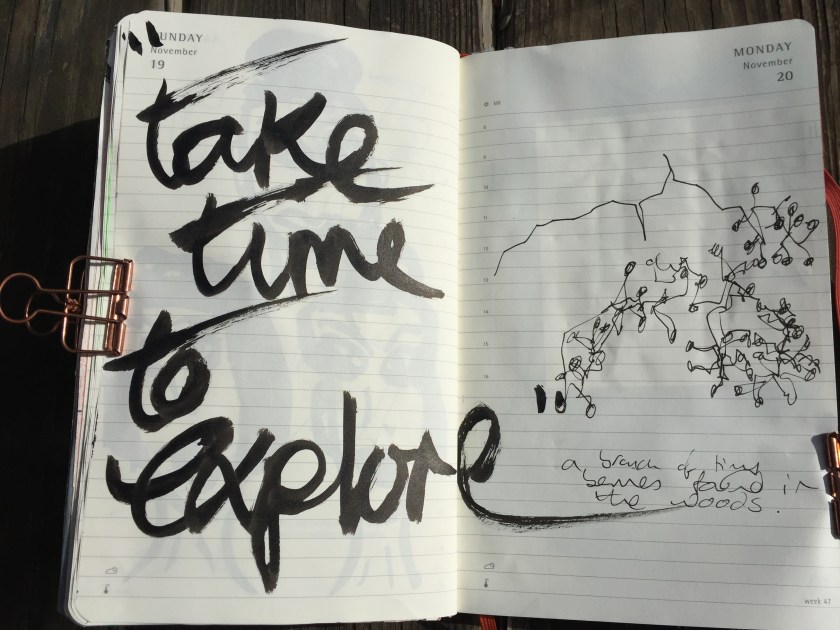 SUNDAY
November
19
"take
time
to
explore"
MONDAY
November
20
8
9
10
11
12
13
14
15
16
a branch of tiny
berries found in
the woods.
week 47